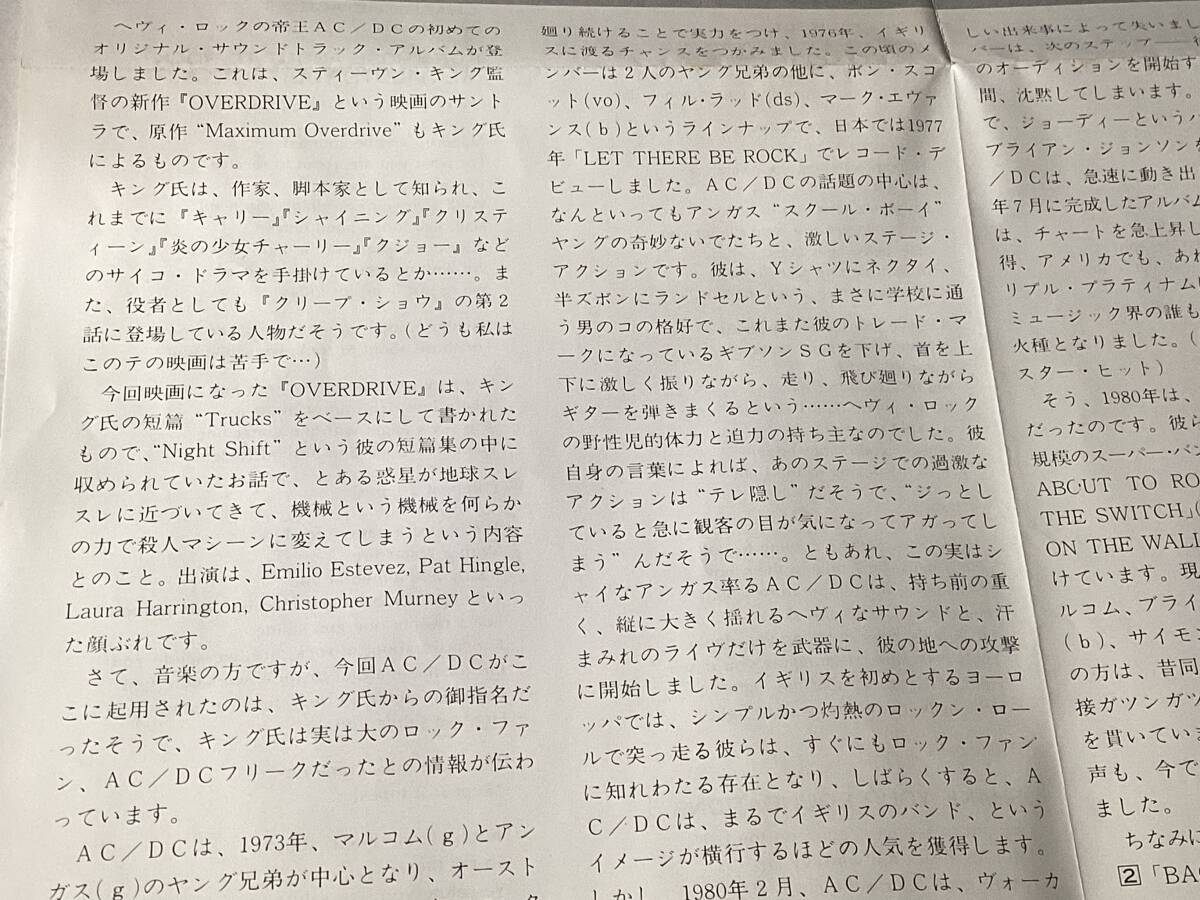 ヘヴィ・ロックの帝王ＡＣ／ＤＣの初めての
オリジナル・サウンドトラック・アルバムが登
場しました。これは、スティーヴン・キング監
督の新作『OVERDRIVE』という映画のサント
ラで、原作“Maximum Overdrive”もキング氏
によるものです。
キング氏は、作家、脚本家として知られ、こ
れまでに『キャリー』『シャイニング』『クリステ
ィーン』『炎の少女チャーリー』『クジョー』など
のサイコ・ドラマを手掛けているとか……。ま
た、役者としても『クリープ・ショウ』の第２
話に登場している人物だそうです。（どうも私は
このテの映画は苦手で…）
今回映画になった『OVERDRIVE』は、キン
グ氏の短篇“Trucks”をベースにして書かれた
もので、“Night Shift”という彼の短篇集の中に
収められていたお話で、とある惑星が地球スレ
スレに近づいてきて、機械という機械を何らか
の力で殺人マシーンに変えてしまうという内容
とのこと。出演は、Emilio Estevez, Pat Hingle,
Laura Harrington, Christopher Murneyといっ
た顔ぶれです。
さて、音楽の方ですが、今回ＡＣ／ＤＣがこ
こに起用されたのは、キング氏からの御指名だ
ったそうで、キング氏は実は大のロック・ファ
ン、ＡＣ／ＤＣフリークだったとの情報が伝わ
っています。
ＡＣ／ＤＣは、1973年、マルコム(g)とアン
ガス(g)のヤング兄弟が中心となり、オースト
廻り続けることで実力をつけ、1976年、イギリ
スに渡るチャンスをつかみました。この頃のメ
ンバーは２人のヤング兄弟の他に、ボン・スコ
ット(vo)、フィル・ラッド(ds)、マーク・エヴァ
ンス(ｂ)というラインナップで、日本では1977
年「LET THERE BE ROCK」でレコード・デ
ビューしました。ＡＣ／ＤＣの話題の中心は、
なんといってもアンガス“スクール・ボーイ”
ヤングの奇妙ないでたちと、激しいステージ・
アクションです。彼は、Ｙシャツにネクタイ、
半ズボンにランドセルという、まさに学校に通
う男のコの格好で、これまた彼のトレード・マ
ークになっているギブソンＳＧを下げ、首を上
下に激しく振りながら、走り、飛び廻りながら
ギターを弾きまくるという……ヘヴィ・ロック
の野性児的体力と迫力の持ち主なのでした。彼
自身の言葉によれば、あのステージでの過激な
アクションは“テレ隠し”だそうで、“ジっとし
ていると急に観客の目が気になってアガってし
まう”んだそうで……。ともあれ、この実はシ
ャイなアンガス率るＡＣ／ＤＣは、持ち前の重
く、縦に大きく揺れるヘヴィなサウンドと、汗
まみれのライヴだけを武器に、彼の地への攻撃
に開始しました。イギリスを初めとするヨーロ
ッパでは、シンプルかつ灼熱のロックン・ロー
ルで突っ走る彼らは、すぐにもロック・ファン
に知れわたる存在となり、しばらくすると、Ａ
Ｃ／ＤＣは、まるでイギリスのバンド、という
イメージが横行するほどの人気を獲得します。
しかし、1980年２月、ＡＣ／ＤＣは、ヴォーカ
しい出来事によって失いまし
バーは、次のステップ
のオーディションを開始す
間、沈黙してしまいます。
で、ジョーディーというバ
ブライアン・ジョンソンを
／ＤＣは、急速に動き出
年７月に完成したアルバム
は、チャートを急上昇し
得、アメリカでも、あれ
リプル・プラティナム
ミュージック界の誰も
火種となりました。（
スター・ヒット）
そう、1980年は、
だったのです。彼ら
規模のスーパー・バン
ABOUT TO RO
THE SWITCH」(
ON THE WALL
けています。現
ルコム、ブライ
(ｂ)、サイモ
の方は、昔同
接ガツンガツ
を貫いていま
声も、今で
ました。
ちなみに
2「BAC